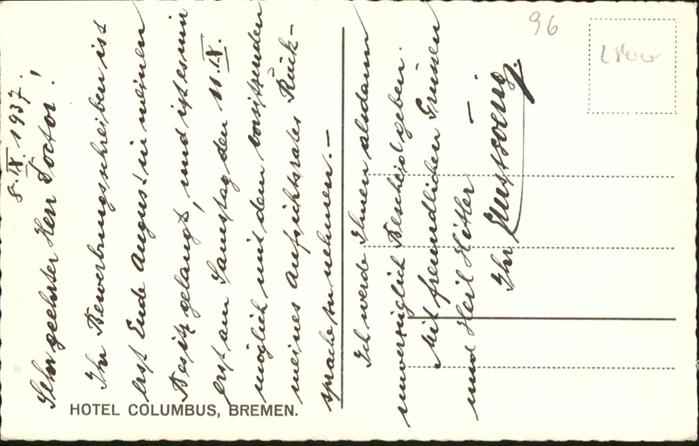 8. IX. 1937.
Sehr geehrter Herr Doctor!
Ihr Bewerbungsschreiben ist
erst Ende August in meinen
Besitz gelangt, und ist es mir
erst am Samstag den 11. IX.
möglich mit dem Vorsitzenden
meines Aufsichtsrates Rück-
sprache zu nehmen. —
Ich werde Ihnen alsdann
unverzüglich Bescheid geben.
Mit freundlichen Grüssen
und Heil Hitler —
Ihr
HOTEL COLUMBUS, BREMEN.
96